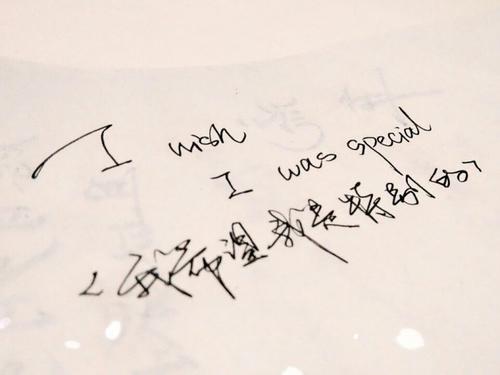 I wish
I was special
<我希望我是特别的>